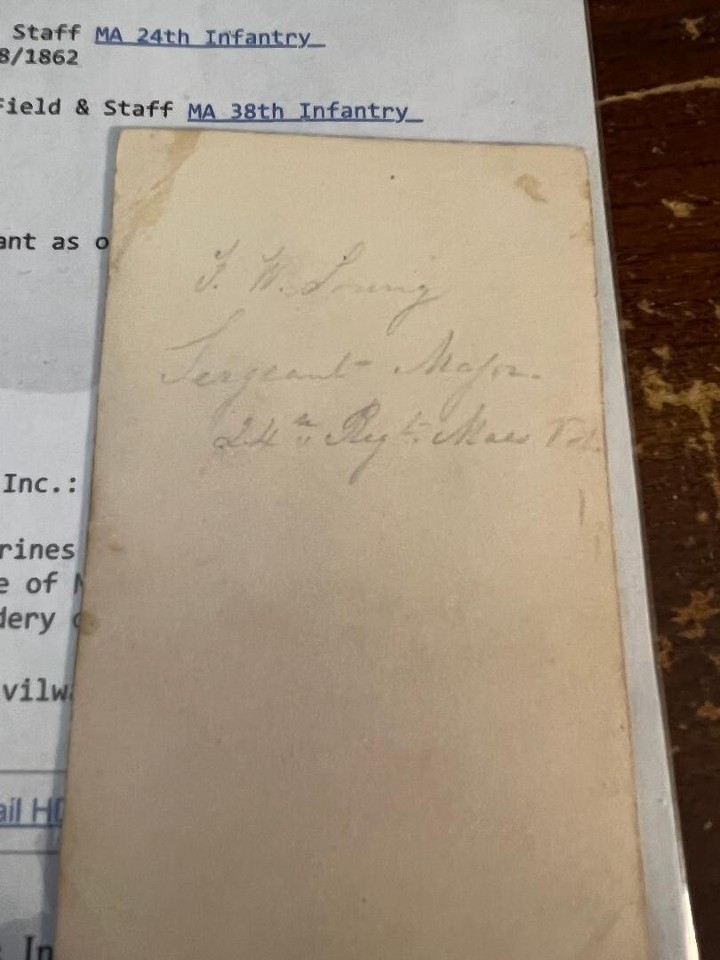 Staff MA 24th Infantry
8/1862
Field & Staff MA 38th Infantry
ant as o
F. W. Loring
Sergeant Major.
24th Regt. Mass Vol.
Inc.:
rines
e of
dery
vilw
ail HD
In